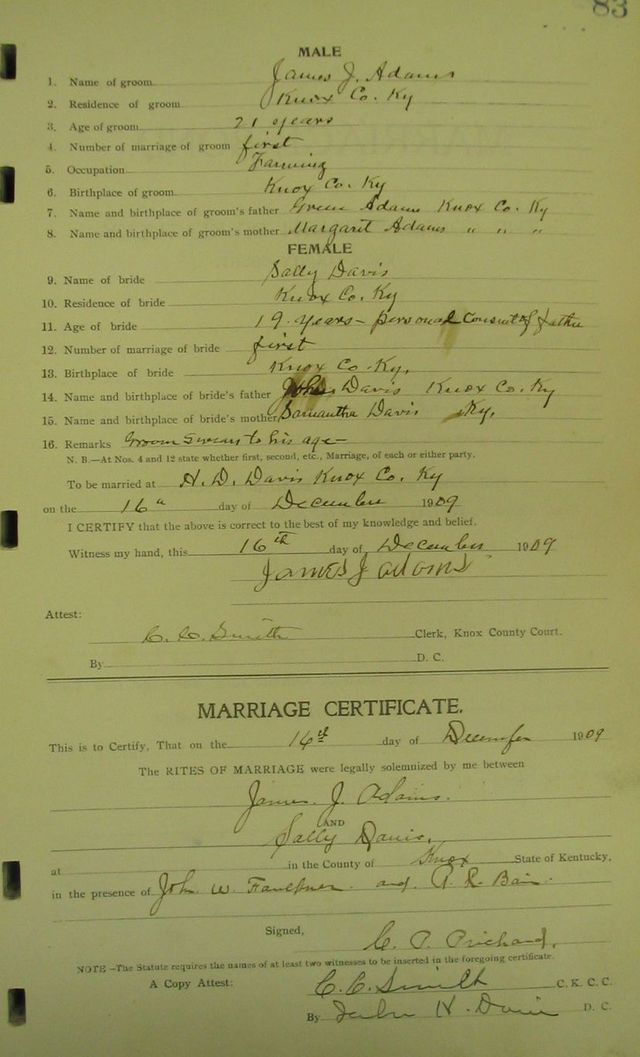 83
MALE
1. Name of groom James J. Adams
2. Residence of groom Knox Co. Ky
3. Age of groom 21 years
4. Number of marriage of groom first
5. Occupation Farming
6. Birthplace of groom Knox Co. Ky
7. Name and birthplace of groom's father Green Adams Knox Co. Ky
8. Name and birthplace of groom's mother Margarit Adams " " "
FEMALE
9. Name of bride Sally Davis
10. Residence of bride Knox Co. Ky
11. Age of bride 19 years - personal consent of father
12. Number of marriage of bride first
13. Birthplace of bride Knox Co. Ky.
14. Name and birthplace of bride's father John Davis Knox Co. Ky
15. Name and birthplace of bride's mother Samantha Davis Ky.
16. Remarks Groom swears to his age
N. B.—At Nos. 4 and 12 state whether first, second, etc., Marriage, of each or either party.
To be married at H. D. Davis Knox Co. Ky
on the 16 day of December 1909
I CERTIFY that the above is correct to the best of my knowledge and belief.
Witness my hand, this 16th day of December 1909
James J Adams
Attest:
C. C. Smith Clerk, Knox County Court.
By D. C.
MARRIAGE CERTIFICATE.
This is to Certify, That on the 16th day of December 1909
The RITES OF MARRIAGE were legally solemnized by me between
James. J. Adams.
AND
Sally Davis,
at in the County of Knox State of Kentucky,
in the presence of John W. Faulkner and
Signed,
C. P. Prichard,
NOTE -The Statute requires the names of at least two witnesses to be inserted in the foregoing certificate.
A Copy Attest: C. C. Smith C. K. C. C.
By H. Davis D. C.